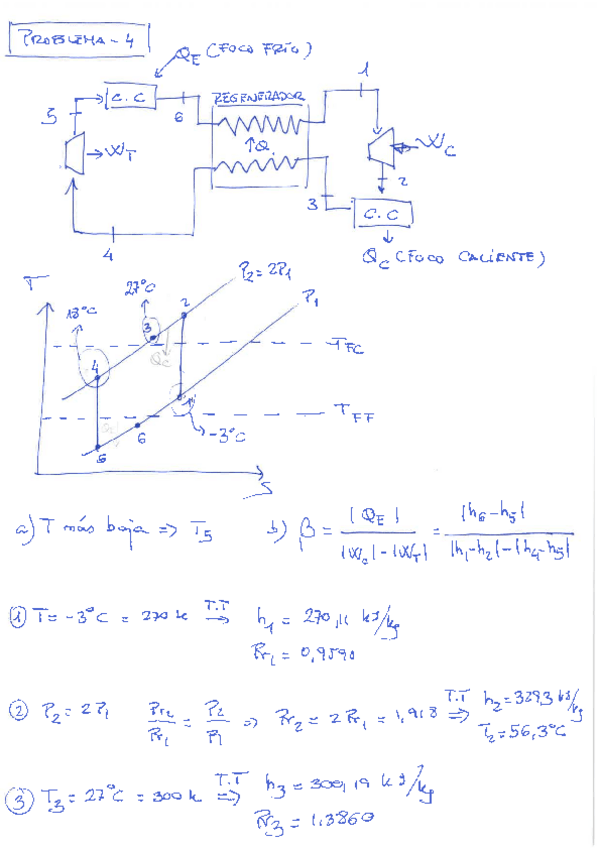 PROBLEMA - 4
QE (FOCO FRÍO)
1
C.C
REGENERADOR
5
6
→ WT
↑Q
WC
2
3
C.C
4
QC (FOCO CALIENTE)
T
P2 = 2P1
27°C
P1
18°C
2
3
TFC
4
1
TFF
6
-3°C
5
S
a) T más baja => T5 b) β = |QE| / (|WC| - |WT|) = |h6 - h5| / (|h1 - h2| - |h4 - h5|)
① T = -3°C = 270 K T.T → h1 = 270,11 kJ/kg
Pr1 = 0,9590
② P2 = 2P1 Pr2/Pr1 = P2/P1 => Pr2 = 2Pr1 = 1,918 T.T => h2 = 329,3 kJ/kg
T2 = 56,3°C
③ T3 = 27°C = 300 K T.T => h3 = 300,19 kJ/kg
Pr3 = 1,3860